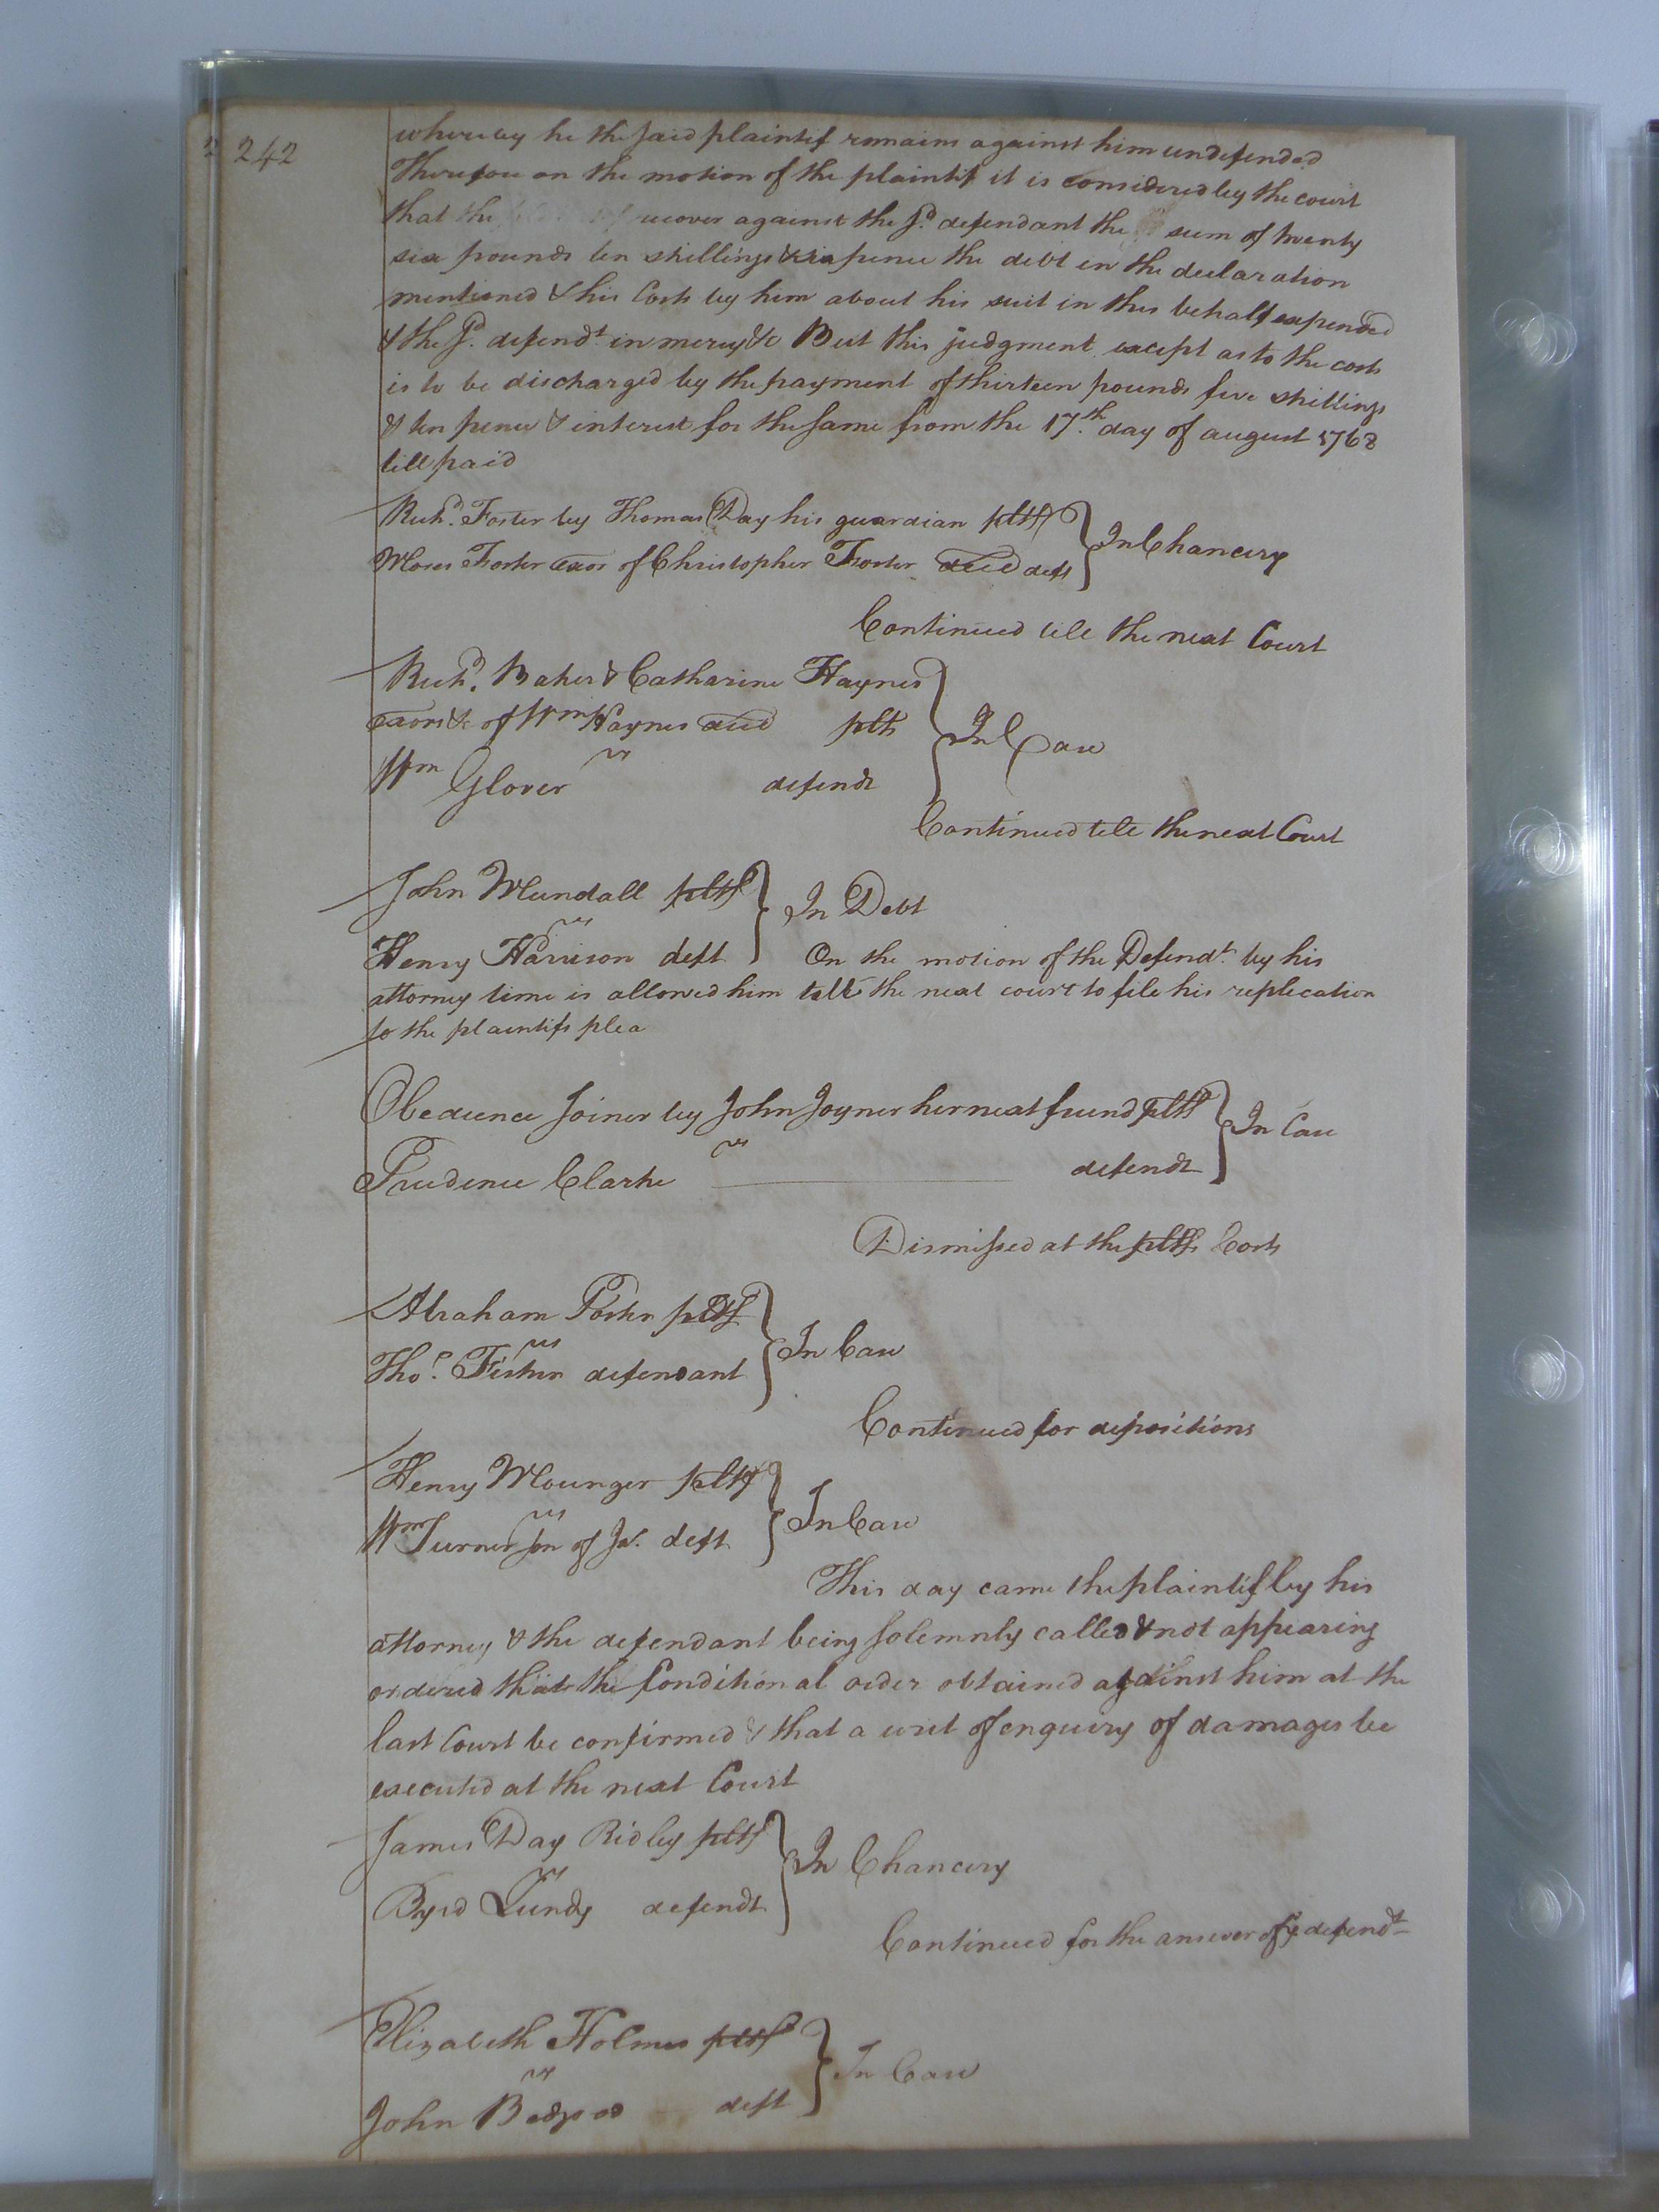 242
whereby he the said plaintif remains against him undefended
Therefore on the motion of the plaintif it is considered by the court
that the recover against the sd. defendant the sum of twenty
six pounds ten shillings & six pence the debt in the declaration
mentioned & his Costs by him about his suit in this behalf expended
& the sd. defendt. in mercy &c But this judgment except as to the costs
is to be discharged by the payment of thirteen pounds five shillings
& ten pence & interest for the same from the 17th. day of august 1768
till paid
Richd. Foster by Thomas Day his guardian pltf
Moses Foster exor of Christopher Foster decd deft
In Chancery
Continued till the next Court
Richd. Baker & Catharine Haynes
exors &c of Wm Haynes decd plts
vs
Wm Glover defendt
In Case
Continued till the next Court
John Mundall pltf
vs
Henry Harrison deft
In Debt
On the motion of the Defendt. by his
attorney time is allowed him till the next court to file his replication
to the plaintifs plea
Obedience Joiner by John Joyner her next friend pltf
vs
Prudence Clarke defendt
In Case
Dismissed at the pltfs Costs
Abraham pltf
vs
Thos. defendant
In Case
Continued for depositions
Henry Mounger pltf
vs
Wm Turner son of Js. deft
In Case
This day came the plaintif by his
attorney & the defendant being solemnly called & not appearing
ordered that the Conditional order obtained against him at the
last Court be confirmed & that a writ of enquiry of damages be
executed at the next Court
James Day Ridley pltf
vs
Byrd Lundy defendt
In Chancery
Continued for the answer of ye defendt
Elizabeth Holmes pltf
vs
John deft
In Case